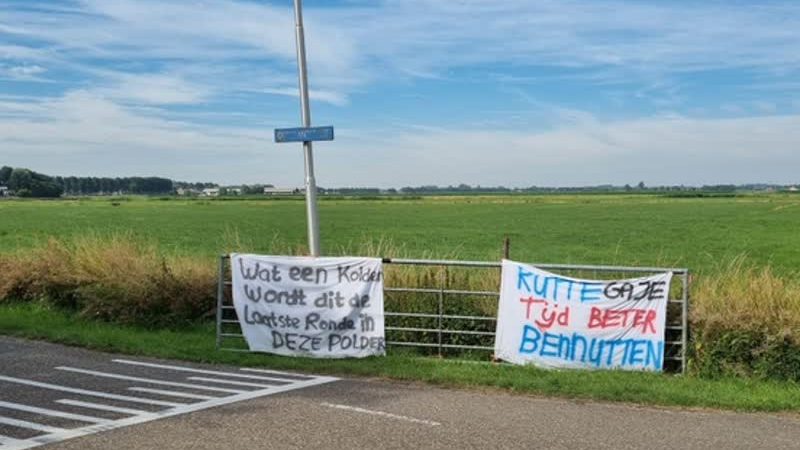 Wat een Kolder
Wordt dit de
Laatste Ronde in
DEZE POLDER
RUTTE GA JE
Tijd BETER
BENNUTTEN